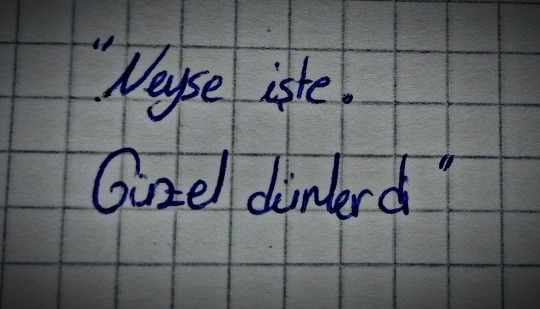 "Neyse işte.
Güzel dünlerdi"